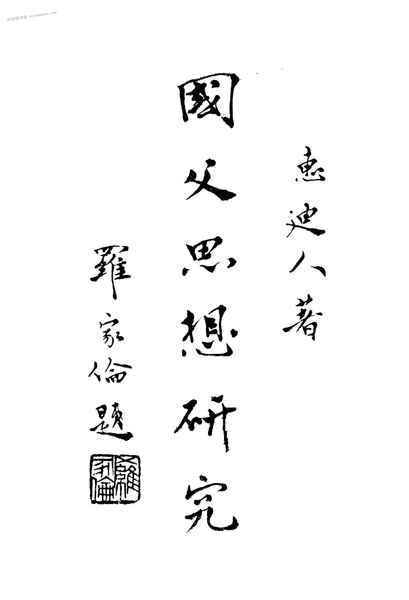 惠迪人著
國父思想研究
羅家倫題
羅家倫